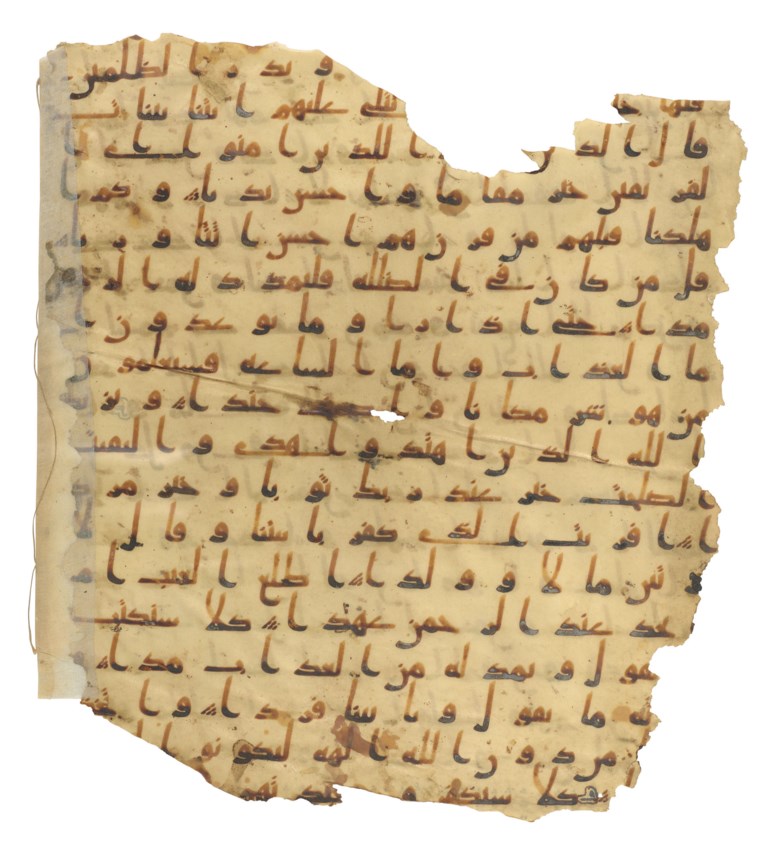 و نذر ا لظلمين
فيها جثـ تتلى عليهم ا يتنا بينت
قا ل ا لذ للذين ا منوا ا
لفريقين خير مقاما و ا حسن نديا و كم ا
هلكنا قبلهم من قرن هم ا حسن ا ثثا و ر يا
قل من كا ن في ا لضللة فليمدد له ا لر
مدا حتى ا ذا ر ا و ا ما يوعدو ن ا
ما ا لعذا ب و ا ما ا لساعة فسيعلمون
من هو شر مكا نا و ا ضعف جندا و يز يد
ا لله ا لذين ا هتدو ا هدى و ا لبقيت
ا لصلحت خير عند ر بك ثو ا با و خير مرد
ا ا فر يت ا لذي كفر با يتنا و قا ل لا
و تين ما لا و و لدا ا طلع ا لغيب ا م
ا تخذ عند ا لر حمن عهدا كلا سنكتب
يقو ل و نمد له من ا لعذا ب مدا
ثه ما يقو ل و يا تينا فر دا و ا تخذ
من د و ن ا لله ا لهة ليكو نو ا
كلا سيكفر و د تهم